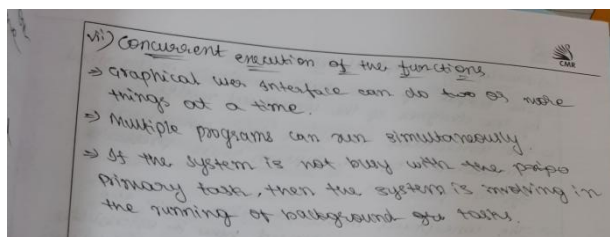 vii) Concurrent execution of the functions
CMR
⇒ Graphical user interface can do two or more
things at a time.
⇒ Multiple programs can run simultaneously.
⇒ If the system is not busy with the
primary task, then the system is involving in
the running of background tasks.